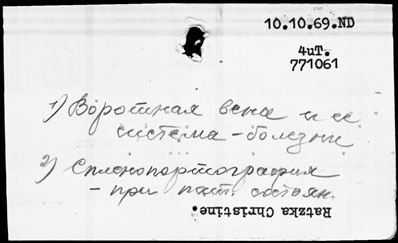 10.10.69.ND
4uT.
771061
1) Воротная вена и ее
система - болезни
2) Спленопортография
- при пат. состоян.
Ratzka Christine.